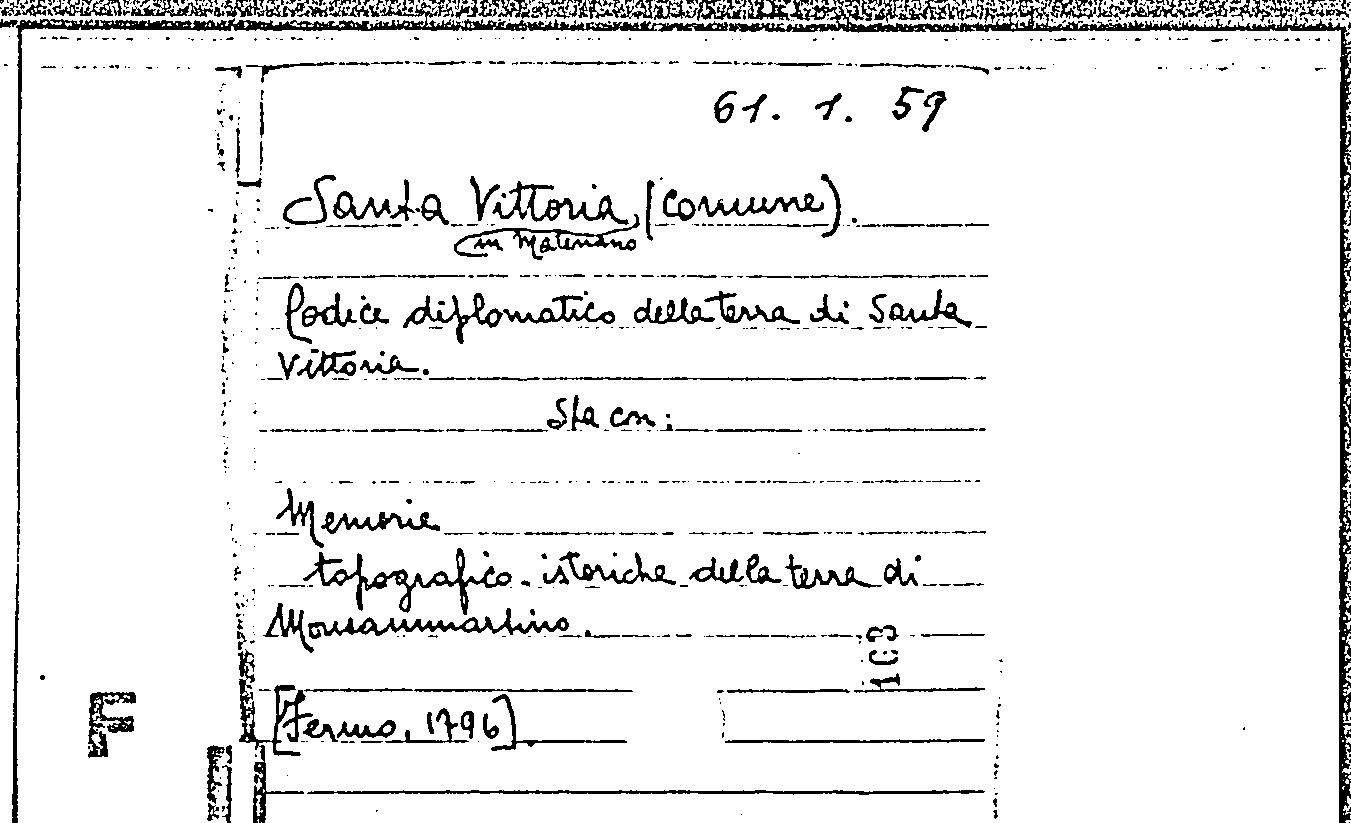 61. 1. 59
Santa Vittoria, (Comune).
in Matenano
Codice diplomatico della terra di Santa
Vittoria.
Sta con:
Memorie
topografico-istoriche della terra di
Monsammartino.
103
F
[Fermo, 1796].